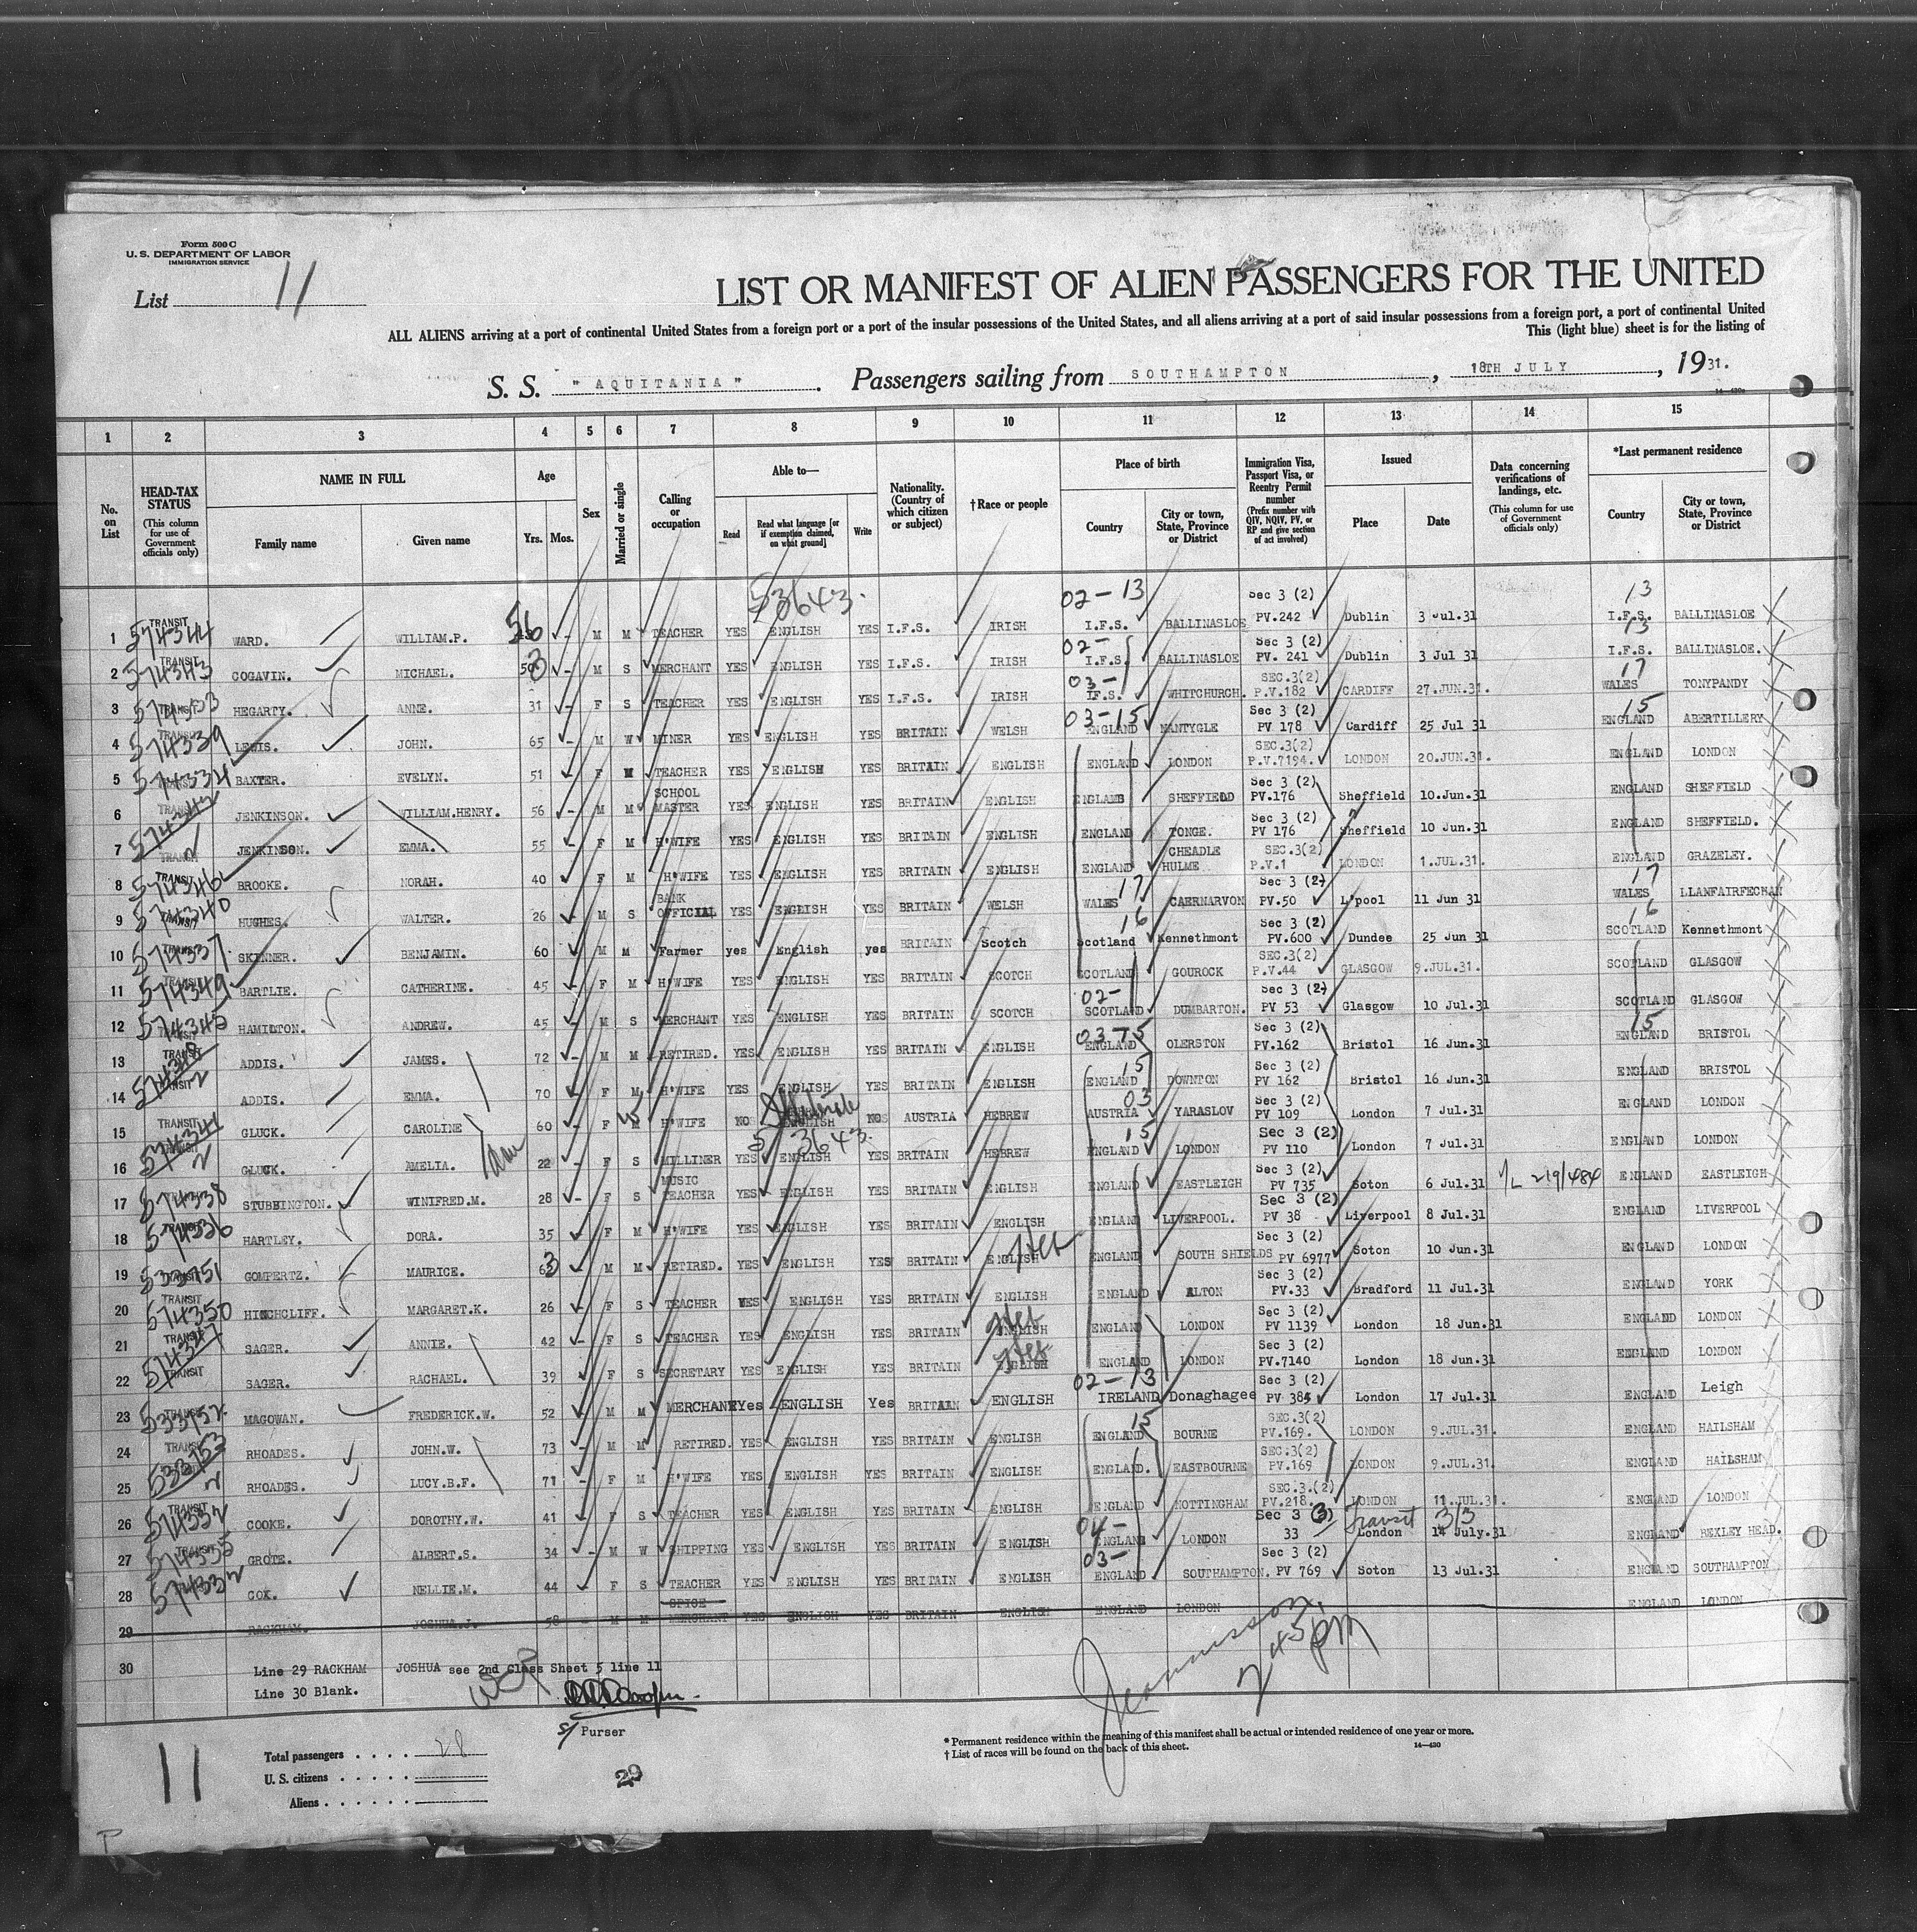 Form 500 C
U. S. DEPARTMENT OF LABOR
IMMIGRATION SERVICE
List 11
LIST OR MANIFEST OF ALIEN PASSENGERS FOR THE UNITED
ALL ALIENS arriving at a port of continental United States from a foreign port or a port of the insular possessions of the United States, and all aliens arriving at a port of said insular possessions from a foreign port, a port of continental United
This (light blue) sheet is for the listing of
S. S. "AQUITANIA". Passengers sailing from SOUTHAMPTON, 18TH JULY, 1931.
14-430a
1 2 3 4 5 6 7 8 9 10 11 12 13 14 15
No. on List
HEAD-TAX STATUS (This column for use of Government officials only)
NAME IN FULL
Family name Given name
Age
Yrs. Mos.
Sex
Married or single
Calling or occupation
Able to—
Read Read what language [or if exemption claimed, on what ground] Write
Nationality. (Country of which citizen or subject)
†Race or people
Place of birth
Country City or town, State, Province or District
Immigration Visa, Passport Visa, or Reentry Permit number (Prefix number with QIV, NQIV, PV, or RP and give section of act involved)
Issued
Place Date
Data concerning verifications of landings, etc. (This column for use of Government officials only)
*Last permanent residence
Country City or town, State, Province or District
53643. 02-13 13
1 TRANSIT 574344 WARD. WILLIAM.P. 56 M M TEACHER YES ENGLISH YES I.F.S. IRISH I.F.S. BALLINASLOE Sec 3 (2) PV.242 Dublin 3 Jul.31 I.F.S. BALLINASLOE
2 TRANSIT 574343 COGAVIN. MICHAEL. M S MERCHANT YES ENGLISH YES I.F.S. IRISH 02- I.F.S. BALLINASLOE Sec 3 (2) PV. 241 Dublin 3 Jul 31 13 I.F.S. BALLINASLOE.
3 TRANSIT HEGARTY. ANNE. 31 F S TEACHER YES ENGLISH YES I.F.S. IRISH 03- IF.S. WHITCHURCH. SEC.3(2) P.V.182 CARDIFF 27.JUN.31. 17 WALES TONYPANDY
4 TRANSIT 574339 LEWIS. JOHN. 65 M W MINER YES ENGLISH YES BRITAIN WELSH 03-15 ENGLAND NANTYGLE Sec 3 (2) PV 178 Cardiff 25 Jul 31 15 ENGLAND ABERTILLERY
5 574334 BAXTER. EVELYN. 51 F M TEACHER YES ENGLISH YES BRITAIN ENGLISH ENGLAND LONDON SEC.3(2) P.V.7194. LONDON 20.JUN.31. ENGLAND LONDON
6 TRANSIT 574347 JENKINSON. WILLIAM.HENRY. 56 M M SCHOOL MASTER YES ENGLISH YES BRITAIN ENGLISH ENGLAND SHEFFIELD Sec 3 (2) PV.176 Sheffield 10.Jun.31 ENGLAND SHEFFIELD
7 TRANSIT JENKINSON. EMMA. 55 F M H'WIFE YES ENGLISH YES BRITAIN ENGLISH ENGLAND TONGE. Sec 3 (2) PV 176 Sheffield 10 Jun.31 ENGLAND SHEFFIELD.
8 TRANSIT 574346 BROOKE. NORAH. 40 F M H'WIFE YES ENGLISH YES BRITAIN ENGLISH ENGLAND CHEADLE HULME SEC.3(2) P.V.1 LONDON 1.JUL.31. ENGLAND GRAZELEY.
9 TRANSIT 574340 HUGHES. WALTER. 26 M S BANK OFFICIAL YES ENGLISH YES BRITAIN WELSH 17 WALES CAERNARVON Sec 3 (2) PV.50 L'pool 11 Jun 31 17 WALES LLANFAIRFECHAN
10 TRANSIT 574337 SKINNER. BENJAMIN. 60 M M Farmer yes English yes BRITAIN Scotch 16 Scotland Kennethmont Sec 3 (2) PV.600 Dundee 25 Jun 31 16 SCOTLAND Kennethmont
11 TRANSIT 574349 BARTLIE. CATHERINE. 45 F M H'WIFE YES ENGLISH YES BRITAIN SCOTCH SCOTLAND GOUROCK SEC.3(2) P.V.44 GLASGOW 9.JUL.31. SCOTLAND GLASGOW
12 574345 HAMILTON. ANDREW. 45 M S MERCHANT YES ENGLISH YES BRITAIN SCOTCH 02- SCOTLAND DUMBARTON. Sec 3 (2) PV 53 Glasgow 10 Jul.31 SCOTLAND GLASGOW
13 TRANSIT 574348 ADDIS. JAMES. 72 M M RETIRED. YES ENGLISH YES BRITAIN ENGLISH 03 15 ENGLAND OLERSTON Sec 3 (2) PV.162 Bristol 16 Jun.31 15 ENGLAND BRISTOL
14 TRANSIT ADDIS. EMMA. 70 F M H'WIFE YES ENGLISH YES BRITAIN ENGLISH 15 ENGLAND DOWNTON Sec 3 (2) PV 162 Bristol 16 Jun.31 ENGLAND BRISTOL
15 TRANSIT 574341 GLUCK. CAROLINE 60 F W H'WIFE NO ENGLISH NO AUSTRIA HEBREW 03 AUSTRIA YARASLOV Sec 3 (2) PV 109 London 7 Jul.31 ENGLAND LONDON
53643.
16 TRANSIT GLUCK. AMELIA. 22 F S MILLINER YES ENGLISH YES BRITAIN HEBREW 15 ENGLAND LONDON Sec 3 (2) PV 110 London 7 Jul.31 ENGLAND LONDON
17 574338 STUBBINGTON. WINIFRED.M. 28 F S MUSIC TEACHER YES ENGLISH YES BRITAIN ENGLISH ENGLAND EASTLEIGH Sec 3 (2) PV 735 Soton 6 Jul.31 V/L 219/484 ENGLAND EASTLEIGH
18 TRANSIT 574336 HARTLEY. DORA. 35 F M H'WIFE YES ENGLISH YES BRITAIN ENGLISH ENGLAND LIVERPOOL. Sec 3 (2) PV 38 Liverpool 8 Jul.31 ENGLAND LIVERPOOL
19 533751 GOMPERTZ. MAURICE. 63 M M RETIRED. YES ENGLISH YES BRITAIN ENGLISH Heb ENGLAND SOUTH SHIELDS Sec 3 (2) PV 6977 Soton 10 Jun.31 ENGLAND LONDON
20 TRANSIT 574350 HINCHCLIFF. MARGARET.K. 26 F S TEACHER YES ENGLISH YES BRITAIN ENGLISH ENGLAND ALTON Sec 3 (2) PV.33 Bradford 11 Jul.31 ENGLAND YORK
21 TRANSIT SAGER. ANNIE. 42 F S TEACHER YES ENGLISH YES BRITAIN Heb ENGLISH ENGLAND LONDON Sec 3 (2) PV 1139 London 18 Jun.31 ENGLAND LONDON
22 TRANSIT SAGER. RACHAEL. 39 F S SECRETARY YES ENGLISH YES BRITAIN Heb ENGLISH ENGLAND LONDON Sec 3 (2) PV.7140 London 18 Jun.31 ENGLAND LONDON
23 TRANSIT 533752 MAGOWAN. FREDERICK.W. 52 M M MERCHANT Yes ENGLISH Yes BRITAIN ENGLISH 02-13 IRELAND Donaghagee Sec 3 (2) PV 384 London 17 Jul.31 ENGLAND Leigh
24 TRANSIT 533753 RHOADES. JOHN.W. 73 M M RETIRED. YES ENGLISH YES BRITAIN ENGLISH 15 ENGLAND BOURNE SEC.3(2) PV.169. LONDON 9.JUL.31. ENGLAND HAILSHAM
25 RHOADES. LUCY.B.F. 71 F M H'WIFE YES ENGLISH YES BRITAIN ENGLISH ENGLAND. EASTBOURNE SEC.3(2) PV.169 LONDON 9.JUL.31. ENGLAND HAILSHAM
26 TRANSIT COOKE. DOROTHY.W. 41 F S TEACHER YES ENGLISH YES BRITAIN ENGLISH ENGLAND NOTTINGHAM SEC.3.(2) PV.218. LONDON 11.JUL.31. ENGLAND LONDON
27 TRANSIT 574335 GROTE. ALBERT.S. 34 M W SHIPPING YES ENGLISH YES BRITAIN ENGLISH 04- ENGLAND LONDON Sec 3 (3) 33 Transit 3/3 London 14 July.31 ENGLAND BEXLEY HEAD.
28 574332 COX. NELLIE.M. 44 F S TEACHER YES ENGLISH YES BRITAIN ENGLISH 03- ENGLAND SOUTHAMPTON. Sec 3 (2) PV 769 Soton 13 Jul.31 ENGLAND SOUTHAMPTON
29 RACKHAM. JOSHUA.J. 58 M M SPICE MERCHANT YES ENGLISH YES BRITAIN ENGLISH ENGLAND LONDON ENGLAND LONDON
30 Line 29 RACKHAM JOSHUA see 2nd Class Sheet 5 line 11
Line 30 Blank.
2 45 pm
Purser
11
Total passengers . . . . 28
U. S. citizens . . . . .
Aliens . . . . . .
29
* Permanent residence within the meaning of this manifest shall be actual or intended residence of one year or more.
† List of races will be found on the back of this sheet.
14—430